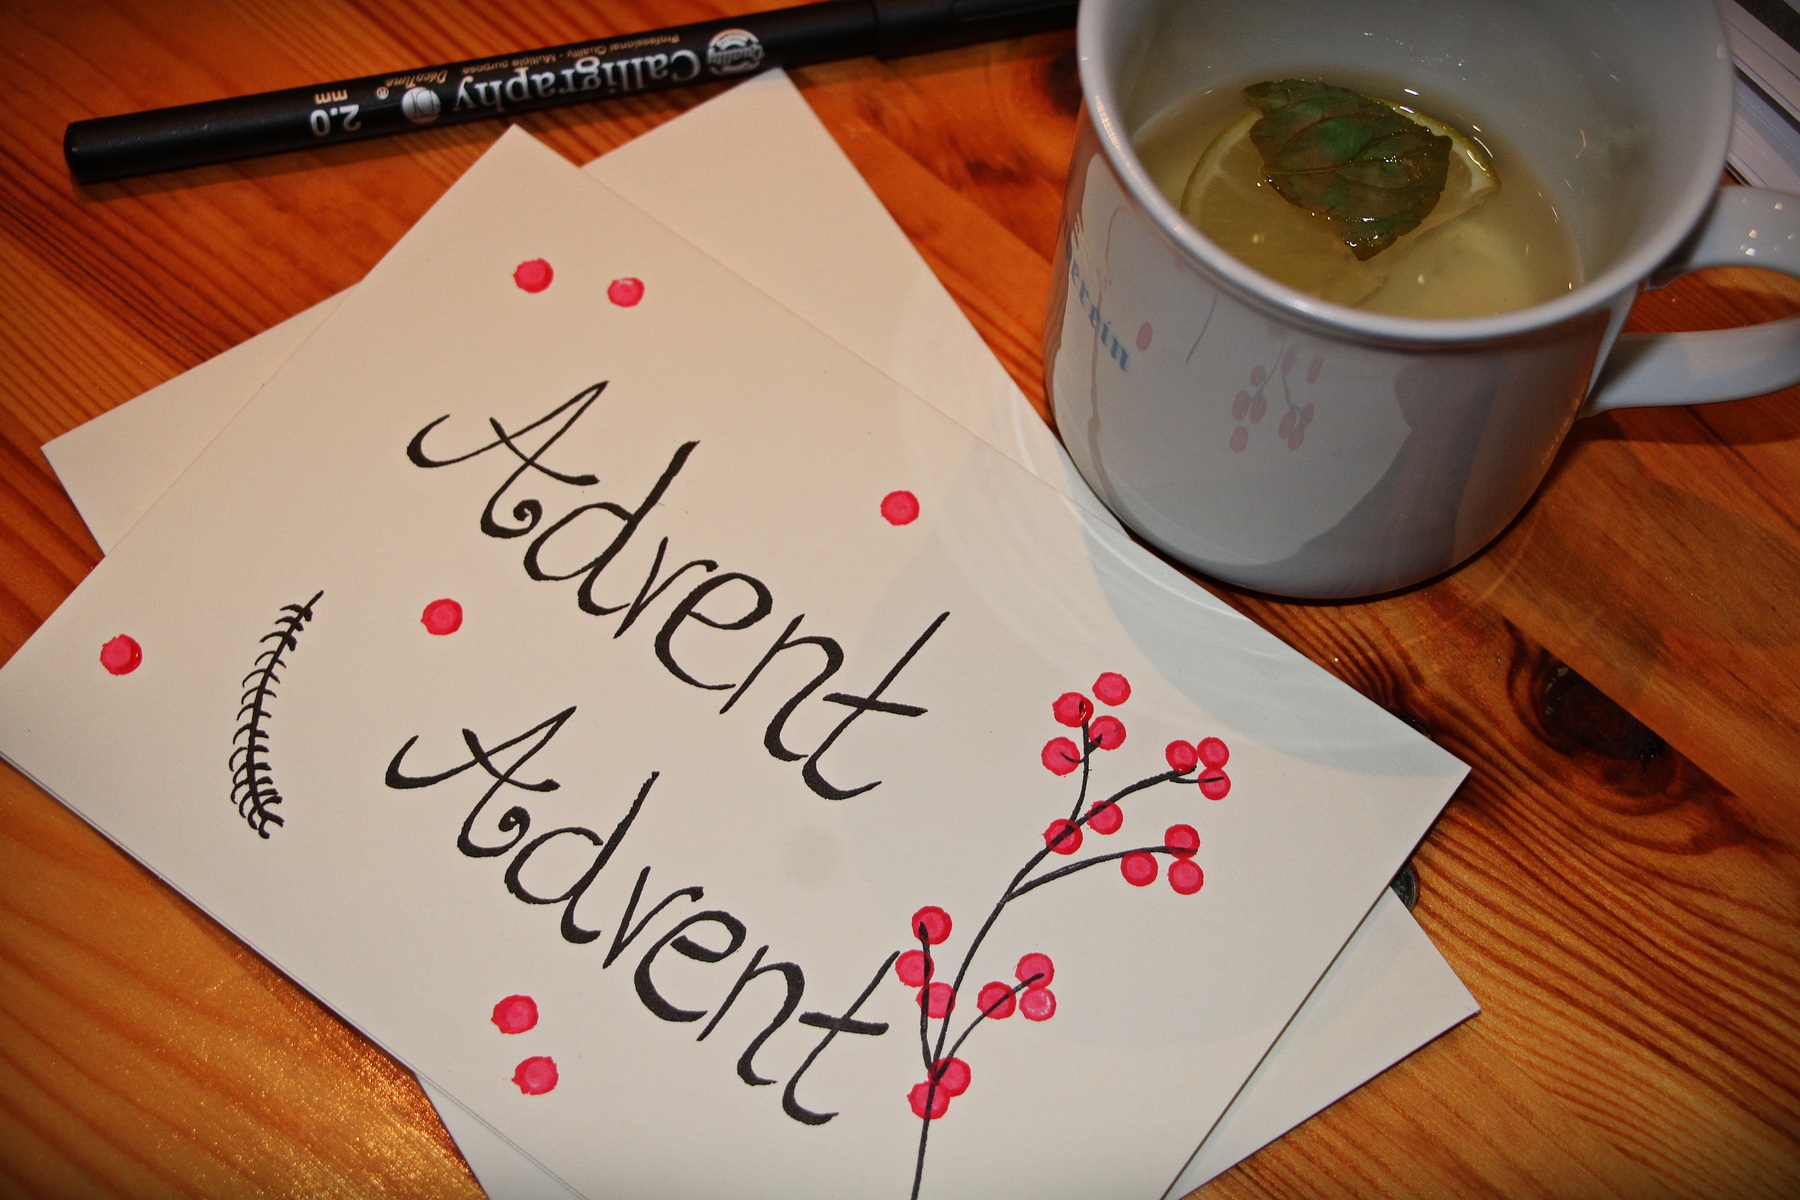 Quality
Calligraphy
Professional Quality - Multiple purpose
DécoTime®
2.0
mm
Advent
Advent